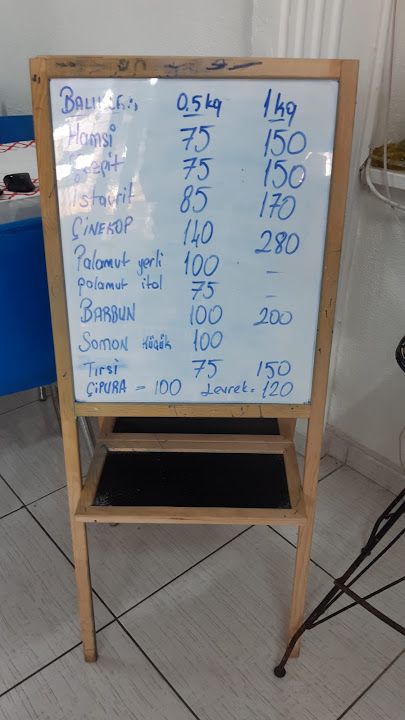 BALIKLAR 0.5kg 1kg
Hamsi 75 150
75 150
istavrit 85 170
ÇİNEKOP 140 280
Palamut yerli 100 -
Palamut ital 75 -
BARBUN 100 200
SOMON küçük 100
Tırsi 75 150
ÇİPURA = 100 Levrek = 120